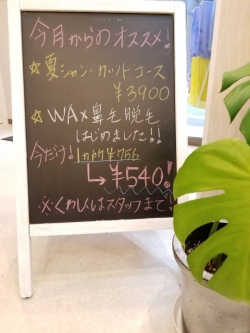 今月からのオススメ!
☆夏シャン・カットコース
¥3900
☆WAX鼻毛脱毛
はじめました!!
今だけ! 1カ所¥756
↳¥540!
※くわしくはスタッフまで!